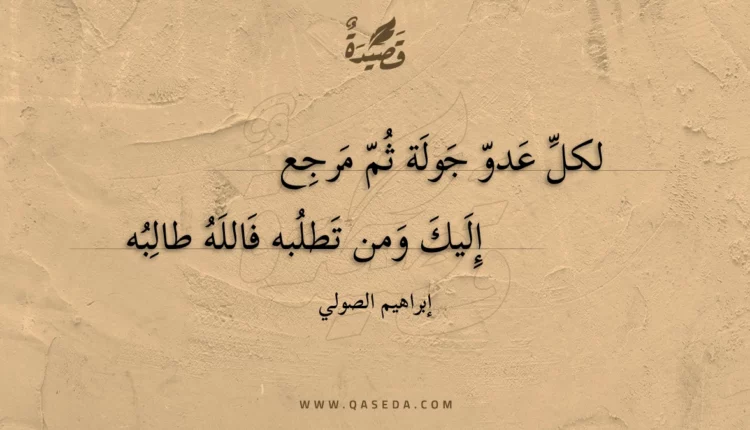 قَصِيْدَةٌ
لكلِّ عَدوّ جَولَة ثُمّ مَرجِع
إِلَيكَ وَمن تَطلُبه فَاللَهُ طالِبُه
إبراهيم الصولي
WWW.QASEDA.COM